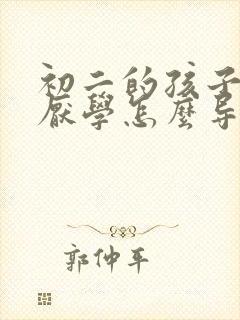 初二的孩子
厭學怎麼导
郭仲平